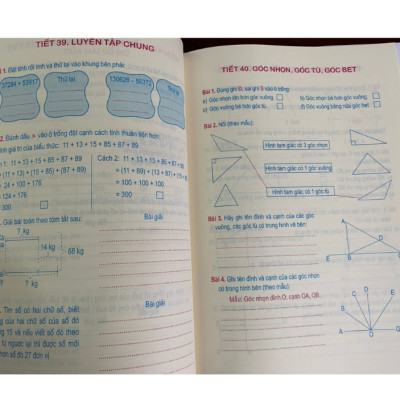 TIẾT 39. LUYỆN TẬP CHUNG
1. Đặt tính rồi tính và thử lại vào khung bên phải:
37284 + 53917
Thử lại
130628 - 56372
Thử lại
2. Đánh dấu × vào ô trống đặt cạnh cách tính thuận tiện hơn:
giá trị của biểu thức: 11 + 13 + 15 + 85 + 87 + 89
1: 11 + 13 + 15 + 85 + 87 + 89
= (11 + 13) + (15 + 85) + (87 + 89)
= 24 + 100 + 176
= 124 + 176
= 300
Cách 2: 11 + 13 + 15 + 85 + 87 + 89
= (11 + 89) + (13 + 87) + (15 + 85)
= 100 + 100 + 100
= 300
Giải bài toán theo tóm tắt sau:
Bài giải
? kg
14 kg
68 kg
? kg
Tìm số có hai chữ số, biết
của hai chữ số của số đó
15 và nếu viết số đó theo
tự ngược lại thì được số mới
hơn số đó 27 đơn vị
Bài giải
TIẾT 40. GÓC NHỌN, GÓC TÙ, GÓC BẸT
Bài 1. Đúng ghi Đ, sai ghi S vào ô trống:
a) Góc nhọn lớn hơn góc vuông
b) Góc nhọn bé hơn góc vuông
c) Góc vuông bé hơn góc tù
d) Góc vuông bằng nửa góc bẹt
Bài 2. Nối (theo mẫu):
Hình tam giác có 3 góc nhọn
Hình tam giác có 1 góc vuông
Hình tam giác có 1 góc tù
Bài 3. Hãy ghi tên đỉnh và cạnh của các góc
vuông, các góc tù có trong hình vẽ bên:
A
D
E
B
Bài 4. Ghi tên đỉnh và cạnh của các góc nhọn
có trong hình bên (theo mẫu):
Mẫu: Góc nhọn đỉnh O; cạnh OA, OB.
C
D
E
B
A
O